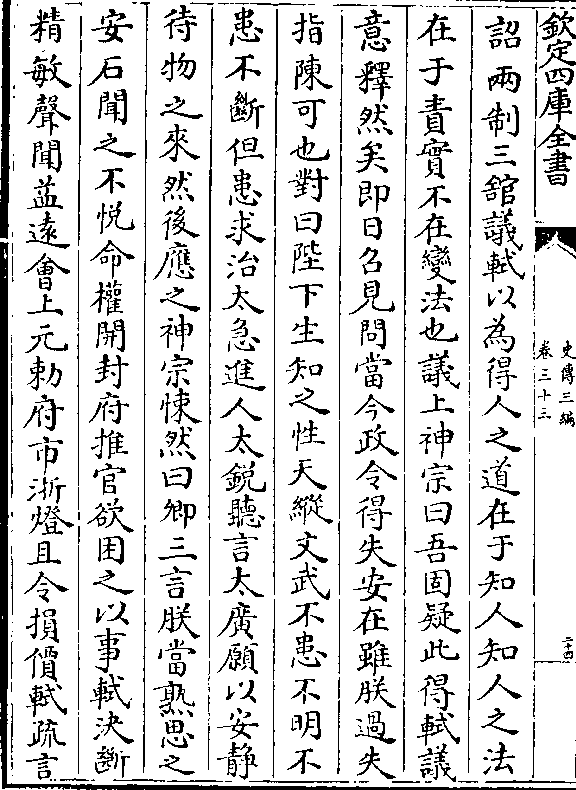 欽定四庫全書
史傳三編
卷三十三
二十四
詔兩制三舘議軾以為得人之道在于知人知人之法
在于責實不在變法也議上神宗曰吾固疑此得軾議
意釋然矣即日召見問當今政令得失安在雖朕過失
指陳可也對曰陛下生知之性天縱文武不患不明不
患不斷但患求治太急進人太鋭聽言太廣願以安静
待物之來然後應之神宗悚然曰卿三言朕當熟思之
安石聞之不悦命權開封府推官欲困之以事軾決斷
精敏聲聞益逺會上元勅府市浙燈且令損價軾疏言